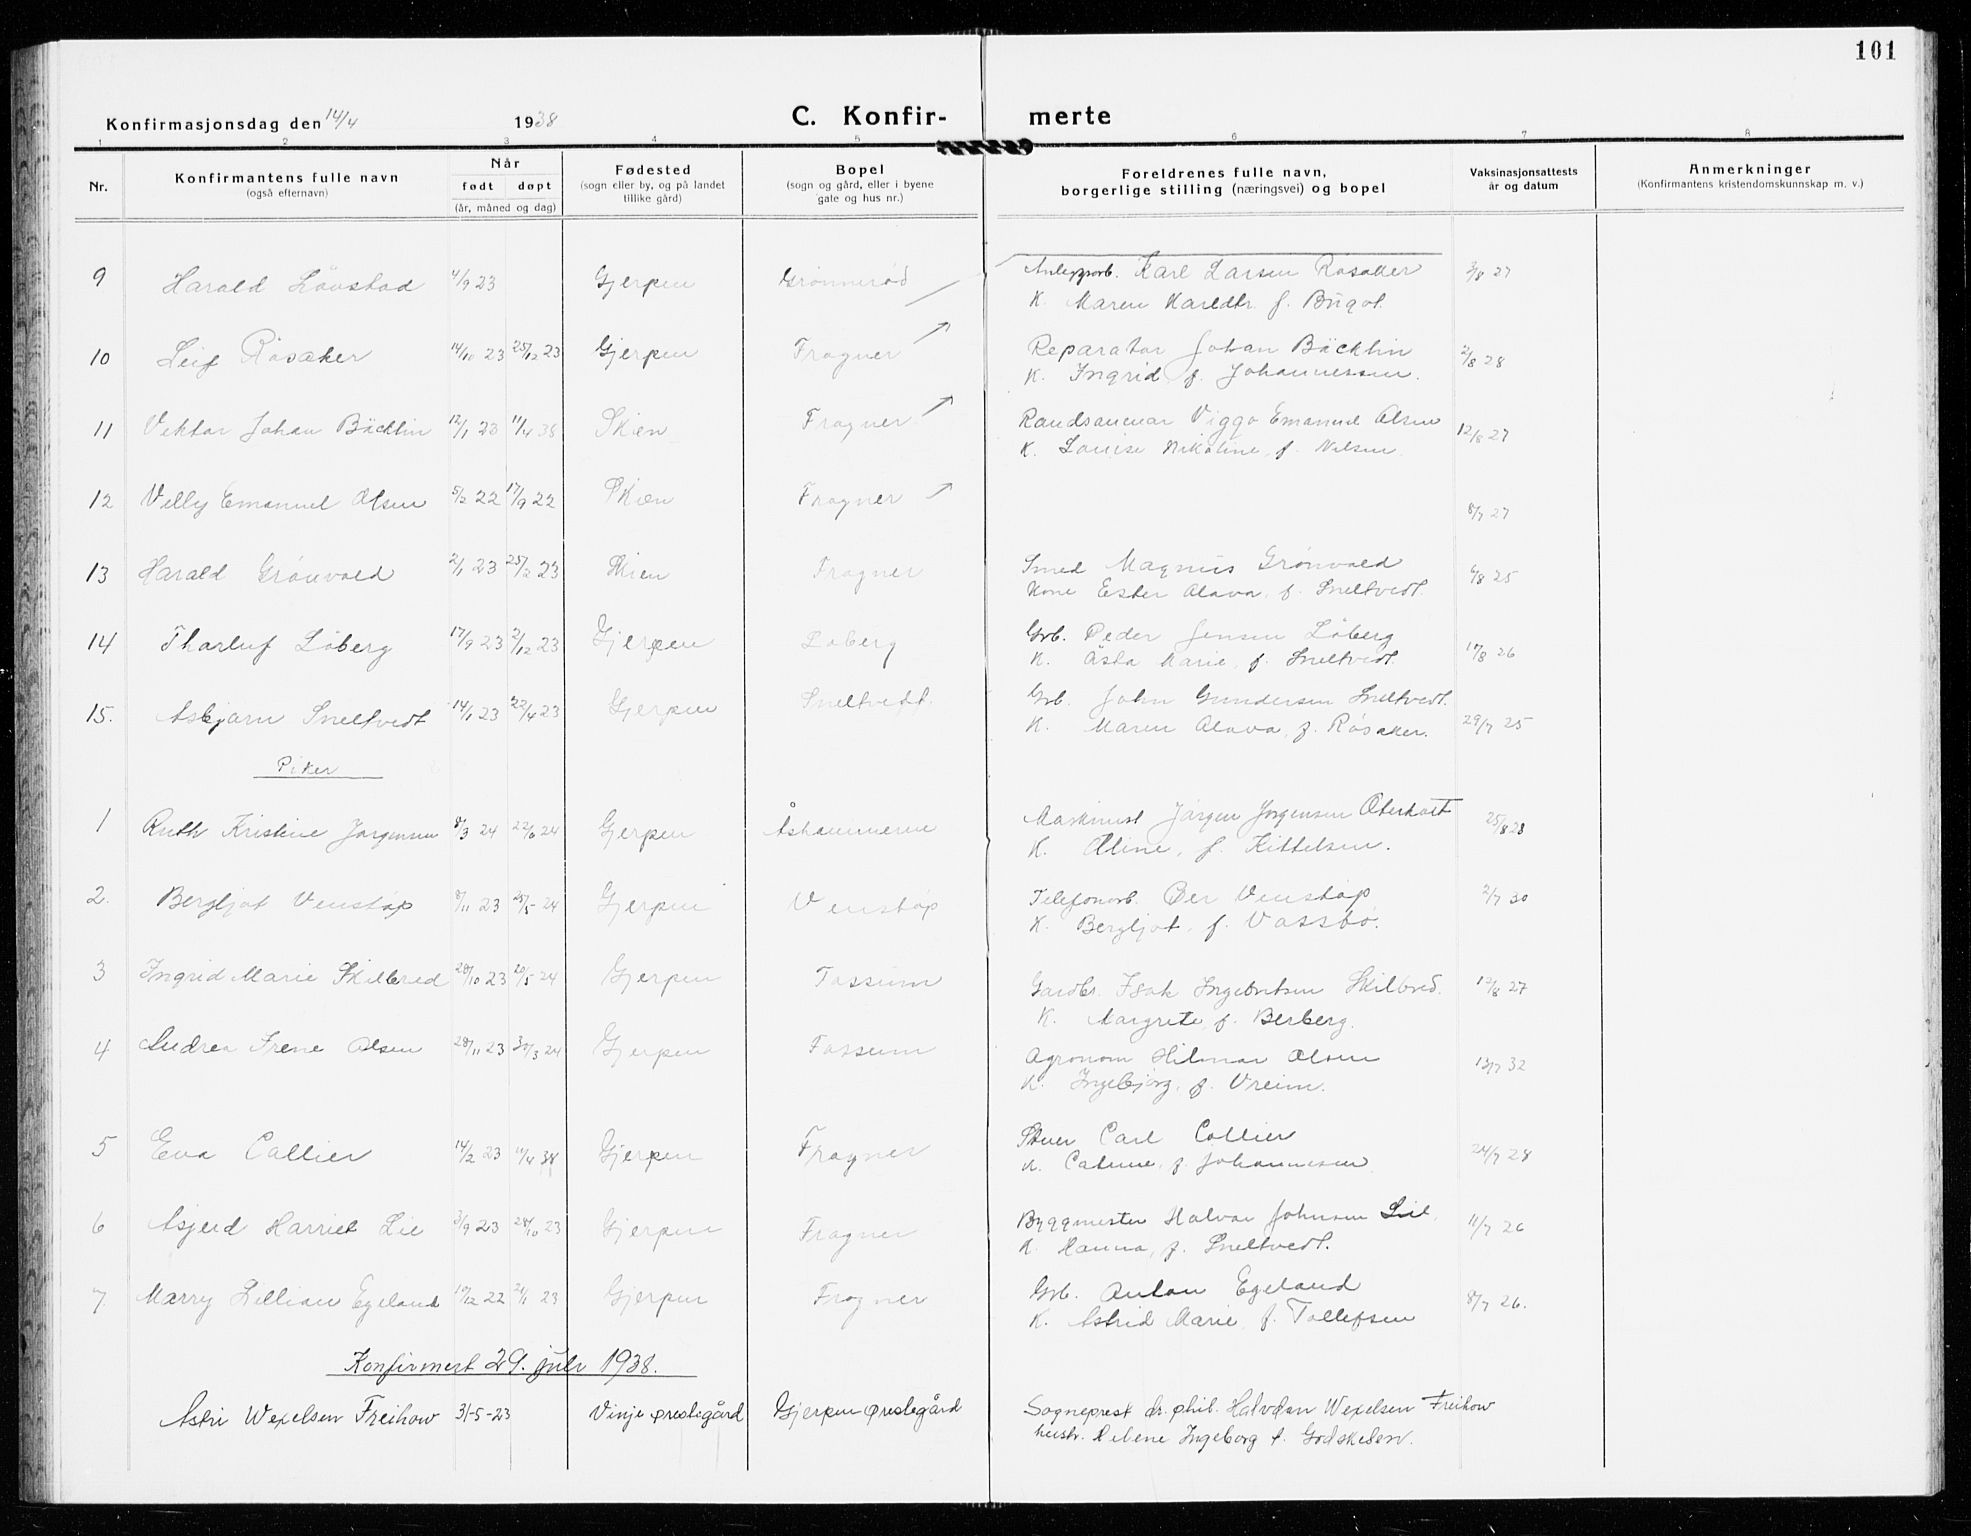 101
Konfirmasjonsdag den 14/4 1938 C. Konfir- merte
1 2 3 4 5 6 7 8
Nr. Konfirmantens fulle navn (også efternavn) Når født døpt (år, måned og dag) Fødested (sogn eller by, og på landet tillike gård) Bopel (sogn og gård, eller i byene gate og hus nr.) Foreldrenes fulle navn, borgerlige stilling (næringsvei) og bopel Vaksinasjonsattests år og datum Anmerkninger (Konfirmantens kristendomskunnskap m. v.)
9 Harald Løvstad 4/9 23 Gjerpen Grønnerød Anleggsarb. Karl Larsen Røsaker 3/8 27
K. Maren Karldtr. f.
10 Leif Røsaker 14/10 23 25/12 23 Gjerpen Frogner Reparatør Johan Bäcklin 2/8 28
K. Ingrid, f. Johannessen.
11 Viktor Johan Bäcklin 12/1 23 11/4 38 Skien Frogner Viggo Emanuel Olsen 12/8 27
K. Louise Nikoline, f. Nilsen
12 Villy Emanuel Olsen 5/2 22 17/9 22 Skien Frogner 8/7 27
13 Harald Grönvold 2/1 23 25/2 23 Skien Frogner Smed Magnus Grönvold 6/8 25
Kone Ester Olava, f. Sneltvedt.
14 Thorluf Löberg 17/9 23 2/12 23 Gjerpen Løberg Grb. Peder Jensen Löberg 17/8 26
K. Åsta Marie, f. Sneltvedt.
15. Asbjørn Sneltvedt 14/1 23 22/4 23 Gjerpen Sneltvedt. Grb. John Gundersen Sneltvedt.
K. Maren Olava, f. Røsaker. 29/7 25
Piker
1 Ruth Kristine Jørgensen 8/3 24 22/6 24 Gjerpen Åshammeren Maskinist Jørgen Jørgensen Oterholt 25/8 28
K. Oline, f. Kittelsen.
2. Bergljot Venstøp 8/11 23 25/5 24 Gjerpen Venstøp Telefonarb. Per Venstøp 2/7 30
K. Bergljot, f. Vassbø.
3 Ingrid Marie Skilbred 28/10 23 20/5 24 Gjerpen Fossum Gardbr. Isak Ingebretsen Skilbred. 12/8 27
K. Margrete, f. Berberg.
4 Andrea Irene Olsen 28/11 23 30/3 24 Gjerpen Fossum Agronom Hilmar Olsen 13/7 32
K. Ingebjørg, f. Vreim.
5 Eva Collier 14/2 23 11/4 38 Gjerpen Frogner Stuer Carl Collier 24/7 28
K. f. Johannesen
6 Asjerd Harriet Lie 3/9 23 28/10 23 Gjerpen Frogner Byggmester Halvor Johnsen Lie. 11/7 26
K. Hanna, f. Sneltvedt.
7. Marry Lillian Egeland 10/12 22 21/1 23 Gjerpen Frogner Grb. Anton Egeland 8/7 26.
K. Astrid Marie, f. Tollefsen
Konfirmert 29. juli 1938.
Astri Wexelsen Freihow 31-5-23 Vinje prestegård Gjerpen prestegård Sogneprest dr. phil. Halvdan Wexelsen Freihow
hustr. Helene Ingeborg f. Godskesen.